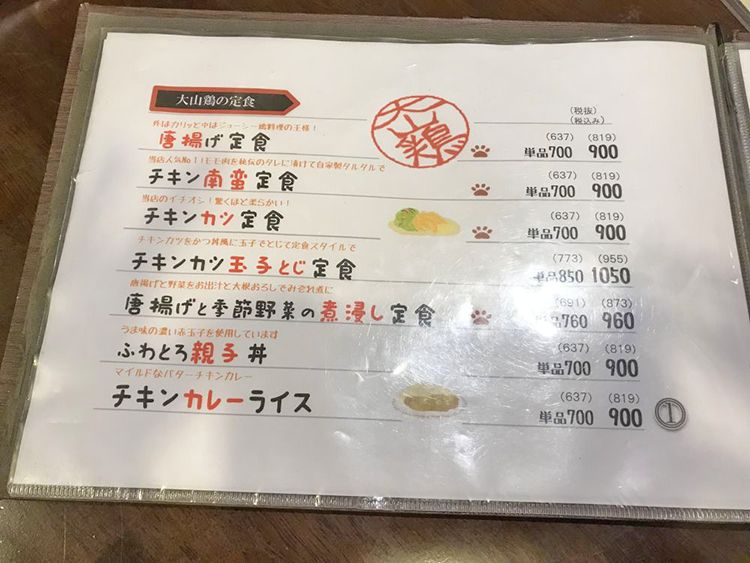 大山鶏の定食
大山鶏
(税抜)
(税込み)
外はカリッと中はジューシー鶏料理の王様!
唐揚げ定食
(637) (819)
単品700 900
当店人気No.1!モモ肉を秘伝のタレに漬けて自家製タルタルで
チキン南蛮定食
(637) (819)
単品700 900
当店のイチオシ!驚くほど柔らかい!
チキンカツ定食
(637) (819)
単品700 900
チキンカツをかつ丼風に玉子でとじて定食スタイルで
チキンカツ玉子とじ定食
(773) (955)
単品850 1050
唐揚げと野菜をお出汁と大根おろしでみぞれ煮に
唐揚げと季節野菜の煮浸し定食
(691) (873)
単品760 960
うま味の濃い赤玉子を使用しています
ふわとろ親子丼
(637) (819)
単品700 900
マイルドなバターチキンカレー
チキンカレーライス
(637) (819)
単品700 900
1